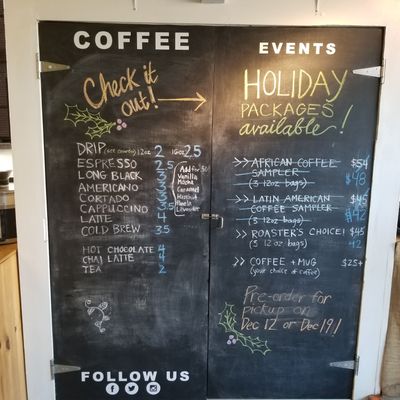 COFFEE
Check it
out!
DRIP (see counter) 12oz 2 16oz 2.5
ESPRESSO 2.5
LONG BLACK 3
AMERICANO 3
CORTADO 3
CAPPUCCINO 3.5
LATTE 4
COLD BREW 3.5
Add for 50¢
Vanilla
Mocha
Caramel
Hazelnut
Lavender
HOT CHOCOLATE 4
CHAI LATTE 4
TEA 2
FOLLOW US
EVENTS
HOLIDAY
PACKAGES
available!
>> AFRICAN COFFEE $54
SAMPLER
(3 12oz bags)
>> LATIN AMERICAN $45
COFFEE SAMPLER
(3 12oz bags) $42
>> ROASTER'S CHOICE! $45
(3 12 oz bags) 42
>> COFFEE + MUG $25+
(your choice of coffee)
Pre-order for
pickup on
Dec 12 or Dec 19!